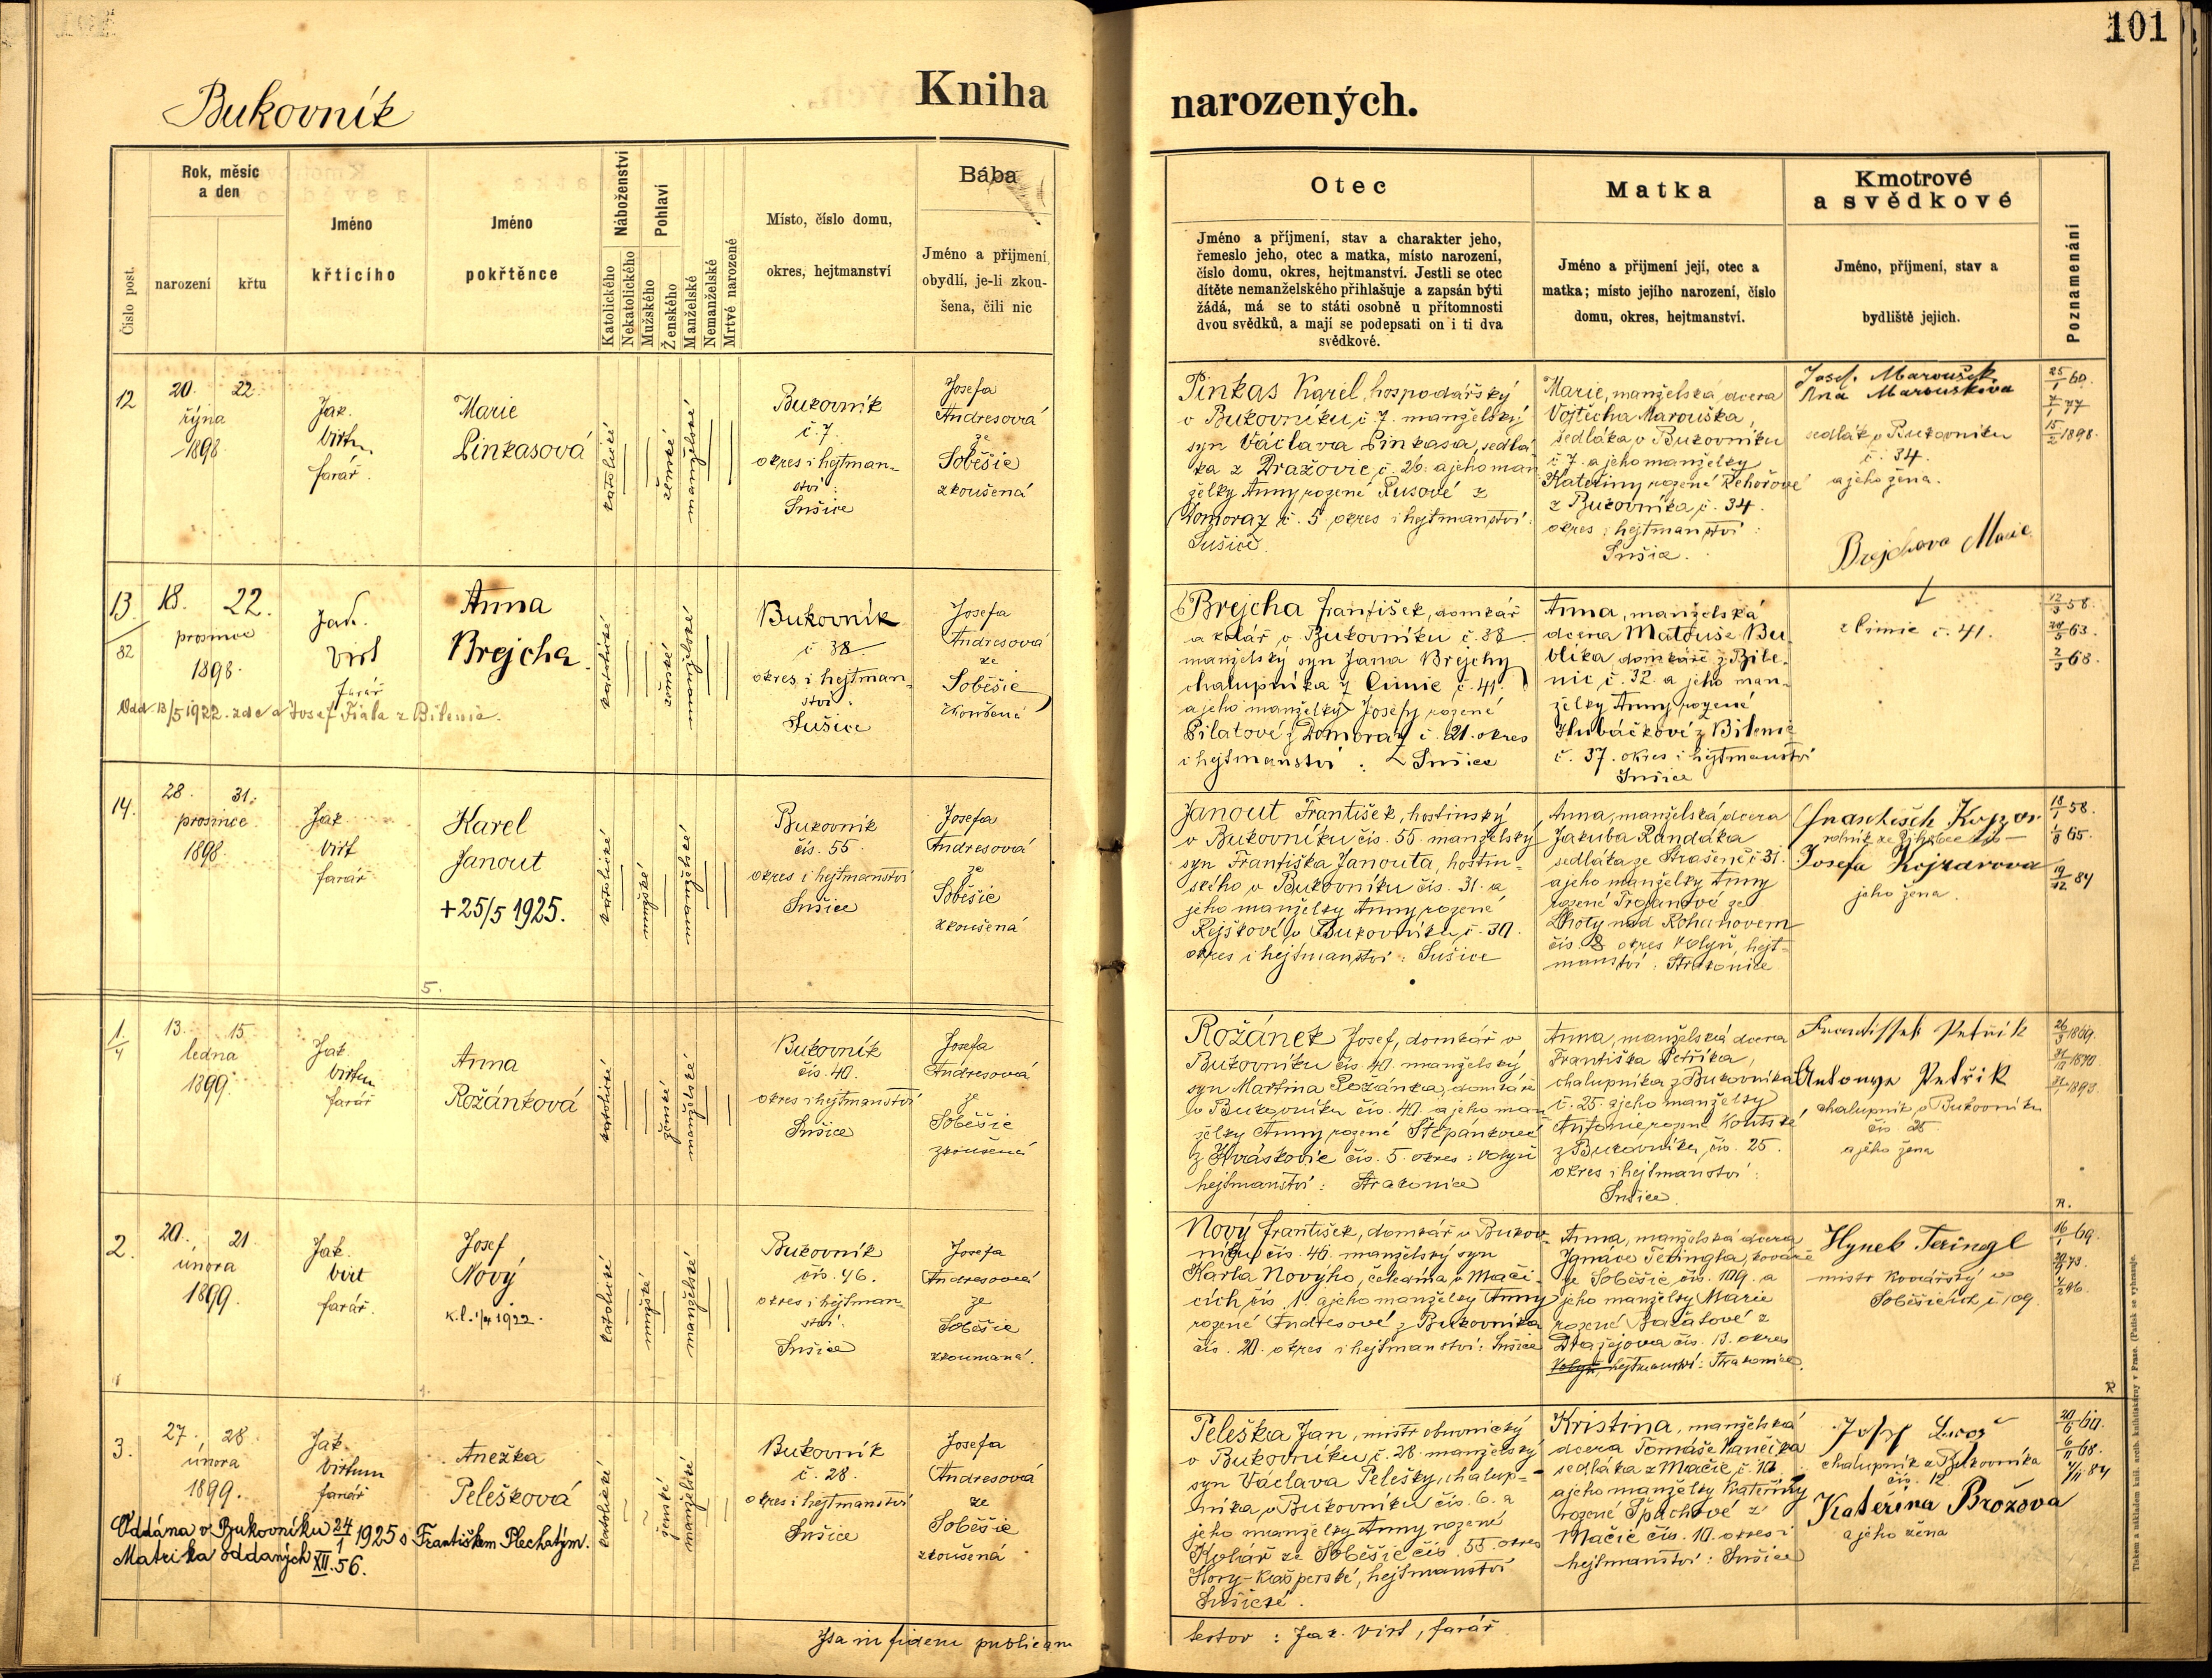 101
Bukovník
Kniha narozených.
Číslo post.
Rok, měsíc
a den
narození
křtu
Jméno
křtícího
Jméno
pokřtěnce
Náboženství
Katolického
Nekatolického
Pohlaví
Mužského
Ženského
Manželské
Nemanželské
Mrtvé narozené
Místo, číslo domu,
okres, hejtmanství
Bába
Jméno a přijmení,
obydlí, je-li zkou-
šena, čili nic
Otec
Jméno a příjmení, stav a charakter jeho,
řemeslo jeho, otec a matka, místo narození,
číslo domu, okres, hejtmanství. Jestli se otec
dítěte nemanželského přihlašuje a zapsán býti
žádá, má se to státi osobně u přítomnosti
dvou svědků, a mají se podepsati on i ti dva
svědkové.
Matka
Jméno a přijmení její, otec a
matka; místo jejího narození, číslo
domu, okres, hejtmanství.
Kmotrové
a svědkové
Jméno, přijmení, stav a
bydliště jejich.
Poznamenání
12
20. 22.
října
1898
Jak.
Virt
farář.
Marie
Pinkasová
katolické
ženské
manželské
Bukovník
č. 7.
okres i hejtman-
ství:
Sušice
Josefa
Andresová
ze
Soběšic
zkoušená
Pinkas Karel, hospodářský
v Bukovníku č. 7. manželský
syn Václava Pinkasa, sedlá
ka z Dražovic č. 26. a jeho man
želky Anny rozené Rusové z
Domoraz č. 5 okres i hejtmanství:
Sušice.
Marie, manželská dcera
Vojtěcha Marouška,
sedláka v Bukovníku
č 7. a jeho manželky
Kateřiny rozené Řehořové
z Bukovníka č. 34.
okres i hejtmanství:
Sušice.
Josef Maroušek
Ana Marouskova
sedlák v Bukovníku
č. 34.
a jeho žena.
25/1 60.
7/1 77
15/2 1898.
13
82
18. 22.
prosince
1898
Jak.
Virt
farář
Anna
Brejcha
Odd. 13/5 1922. zde a Josef Fiala z Bilenic.
katolické
ženské
manželské
Bukovník
č 38
okres i hejtman-
ství:
Sušice
Josefa
Andresová
ze
Soběšic
zkoušená
Brejcha František, domkář
a kolář v Bukovníku č. 38
manželský syn Jana Brejchy
chalupníka z Čimic č. 41.
a jeho manželky Josefy rozené
Pilatové z Domoraz č. 21. okres
i hejtmanství: Sušice
Anna, manželská
dcera Matouše Bu
blíka domkáře z Bile-
nic č. 32. a jeho man-
želky Anny rozené
Hubáčkové z Bilenic
č. 37. okres i hejtmanství
Sušice
Brejchova Marie
z Čimic č. 41.
12/3 58.
63.
68.
14.
28. 31.
prosince
1898.
Jak
Virt
farář
Karel
Janout
+25/5 1925.
5.
katolické
mužské
manželské
Bukovník
čís. 55.
okres i hejtmanství
Sušice
Josefa
Andresová
ze
Soběšic
zkoušená
Janout František, hostinský
v Bukovníku čís. 55. manželský
syn Františka Janouta, hostin-
ského v Bukovníku čís. 31. a
jeho manželky Anny rozené
Rejškové z Bukovníku č. 30.
okres i hejtmanství: Sušice
Anna, manželská dcera
Jakuba Randáka
sedláka ze Strašeně č 31.
a jeho manželky Anny
rozené Trojanové ze
Lhoty nad Rohanovem
čís. 8 okres Volyň, hejt-
manství: Strakonice
Josefa Kojzarova
jeho žena.
18/1 58.
65.
19/12 84
1/4
13. 15
ledna
1899
Jak.
Virt
farář
Anna
Rožánková
katolické
ženské
manželské
Bukovník
čís. 40.
okres i hejtmanství
Sušice
Josefa
Andresová
ze
Soběšic
zkoušená
Rožánek Josef, domkář v
Bukovníku čís. 40. manželský
syn Martina Rožánka, domkáře
v Bukovníku čís. 40. a jeho man
želky Anny rozené Štěpánkové
z Hráskovic čís. 5. okres: Volyň
hejtmanství: Strakonice
Anna, manželská dcera
Františka Petříka,
chalupníka z Bukovníka
č. 25 a jeho manželky
Antonie rozené
z Bukovníka čís. 25.
okres i hejtmanství:
Sušice.
Frantissek Petřík
Antonye Petřik
chalupník v Bukovníku
čís. 25.
a jeho žena
1869.
1870
R.
2.
20. 21.
února
1899.
Jak.
Virt
farář.
Josef
Nový
K. l. 1/4 1922.
katolické
mužské
manželské
Bukovník
čís. 46.
okres i hejtman-
ství:
Sušice
Josefa
Andresová
ze
Soběšic
zkoumaná.
Nový František, domkář v Bukov-
níku čís. 46. manželský syn
Karla Nového, čeledína v Mači-
cích čís. 1. a jeho manželky Anny
rozené Andresové z Bukovníka
čís. 20. okres i hejtmanství: Sušice
Anna, manželská dcera
Ignáce Teringla, kováře
ze Soběšic čís. 109. a
jeho manželky Marie
rozené Balatové z
Dražejova čís. 13. okres
Volyň, hejtmanství: Strakonice.
Hynek Teringl
mistr kovářský v
Soběšicích č. 109.
16/1 69.
73.
96.
R
3.
27. 28.
února
1899.
Jak.
Virt
farář
Anežka
Pelešková
Oddána v Bukovníku 24/1 1925 s Františkem Plechatým.
Matrika oddaných XII. 56.
katolické
ženské
manželské
Bukovník
č. 28.
okres i hejtmanství
Sušice
Josefa
Andresová
ze
Soběšic
zkoušená
Peleška Jan, mistr obuvnický
v Bukovníku č. 28. manželský
syn Václava Pelešky, chalup-
níka v Bukovníku čís. 6. a
jeho manželky Anny rozené
Kolář ze Soběšic čís. 55. okres
Hory-Kašperské, hejtmanství
Sušické.
Kristina, manželská
dcera Tomáše Vaněčka
sedláka z Mačic č. 10
a jeho manželky Kateřiny
rozené Špachové z
Mačic čís. 10. okres i
hejtmanství: Sušice
chalupník z Bukovníka
čís. 12.
Kateřina Brožova
a jeho žena
60.
68.
84
Ita in fidem publicam
testor: Jak. Virt, farář